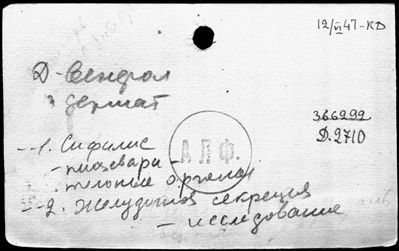 12/VI 47-КД
Д-Венерол
дермат
366299
Д.2710
1. Сифилис
- пищевари-
тельные органы
А Л Ф.
2. Желудочная секреция
- исследование